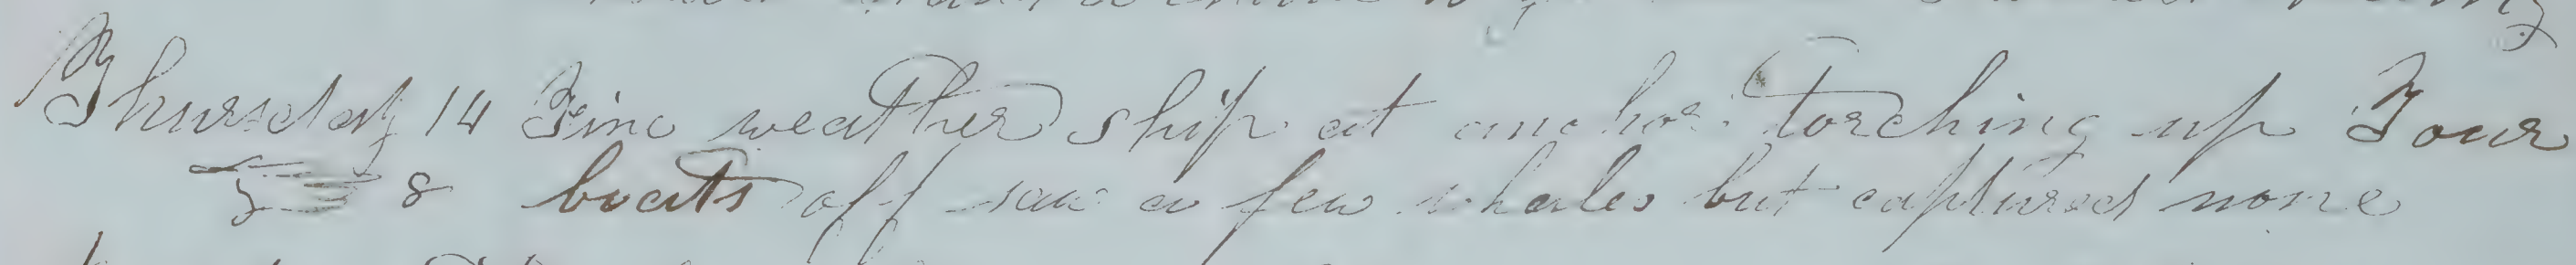 Thursday 14 Fine weather ship at anchor torching up Four
8 boats off saw a few whales but captured none